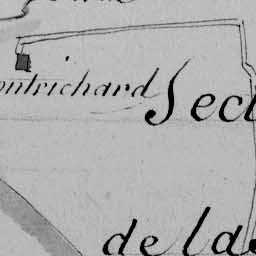 ontrichard
Sect
de la